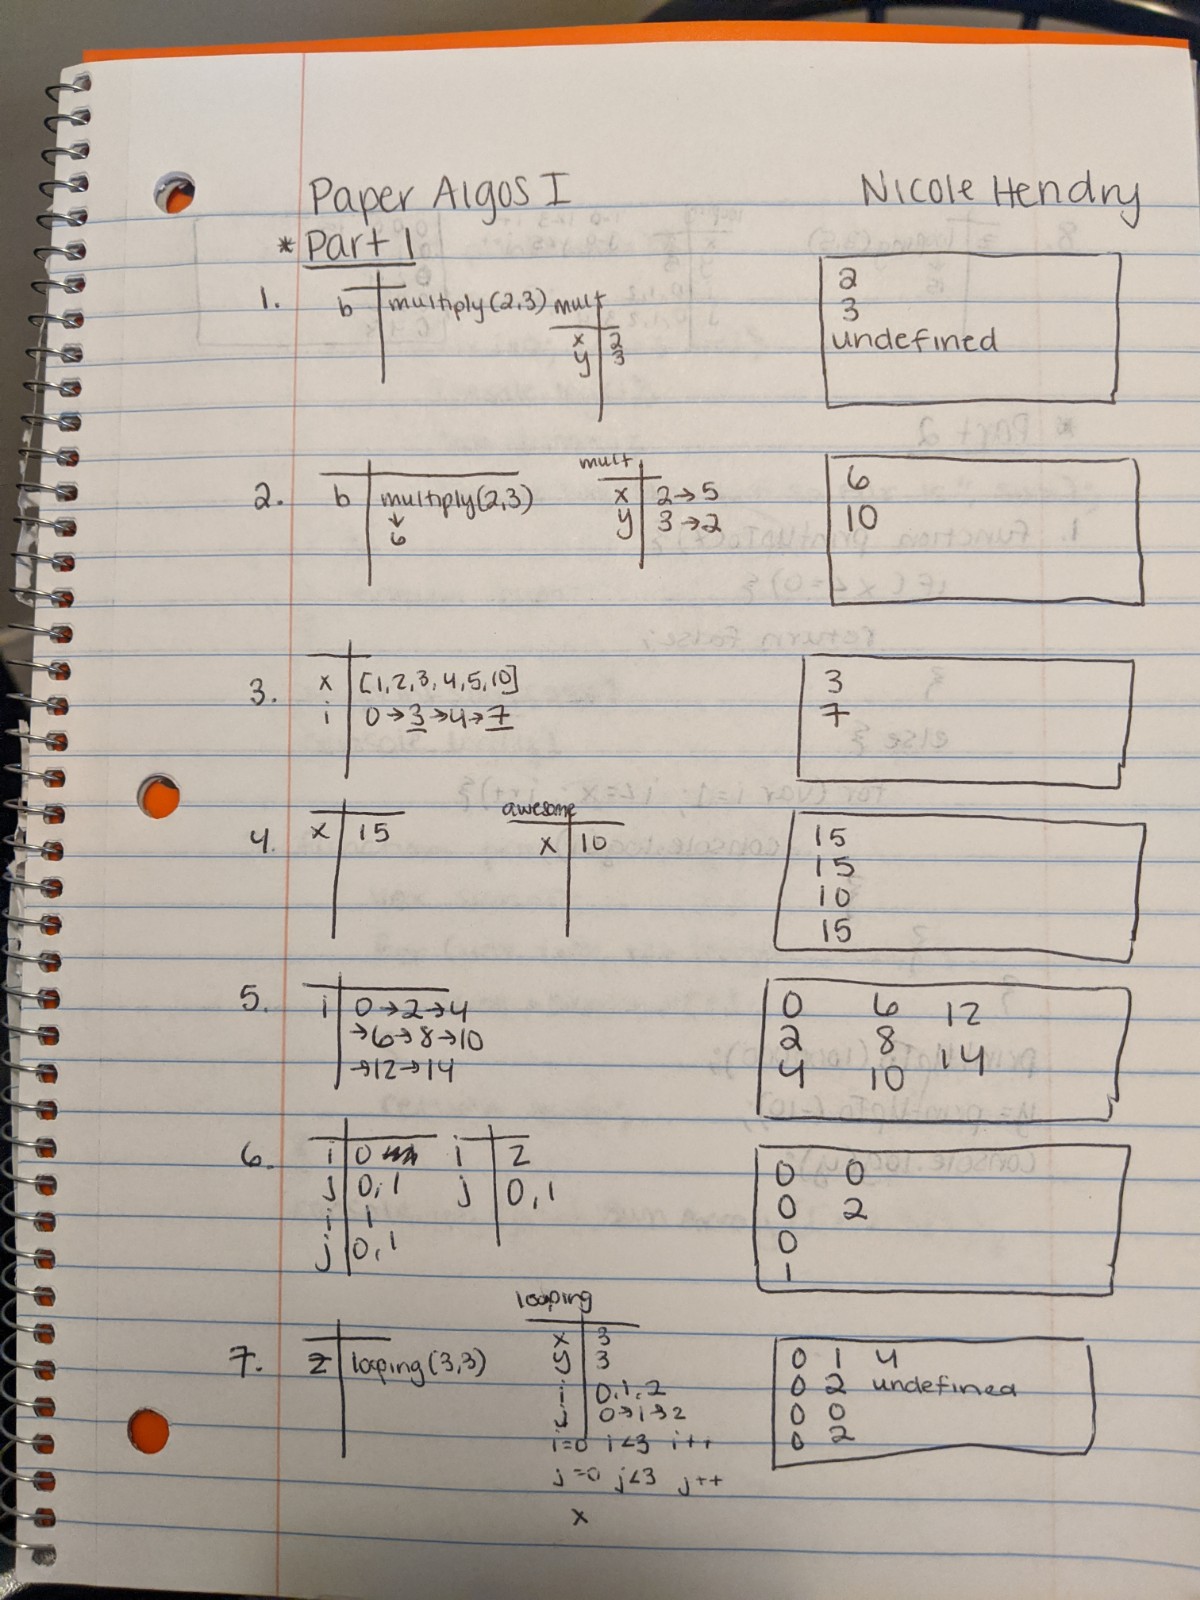 Paper Algos I Nicole Hendry
* Part 1
1. b multiply(2,3) mult
x 2
y 3
2
3
undefined
2. b multiply(2,3)
↓
6
mult
x 2→5
y 3→2
6
10
3. x [1,2,3,4,5,10]
i 0→3→4→7
3
7
4. x 15
awesome
x 10
15
15
10
15
5. i 0→2→4
→6→8→10
→12→14
0 6 12
2 8 14
4 10
6. i 0 i 2
j 0,1 j 0,1
i 1
j 0,1
0 0
0 2
0
1
7. z looping(3,3)
looping
x 3
y 3
i 0,1,2
j 0→1→2
i=0 i<3 i++
j=0 j<3 j++
x
0 1 4
0 2 undefined
0 0
0 2